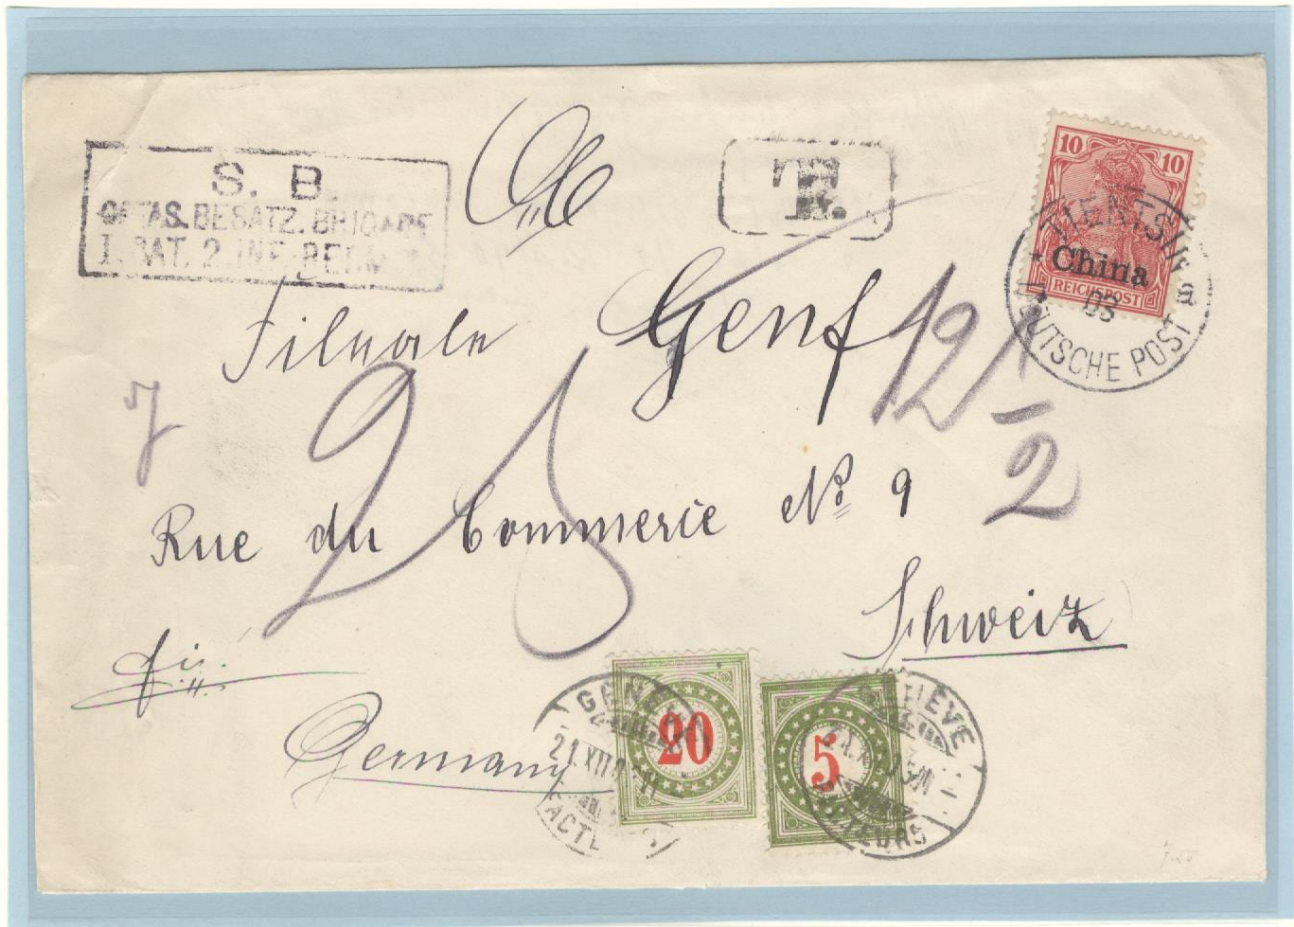 S. B
OSTAS. BESATZ. BRIGADE
I. BAT. 2. INF.
T.
10 10
China
REICHSPOST
TIENTSIN
03
DEUTSCHE POST
Filiale Genf
12 1/2
25
Rue du Commerce No 9
Schweiz
Germany
20
5
GENÈVE
21.XII
FACTEURS
GENÈVE
FACTEURS